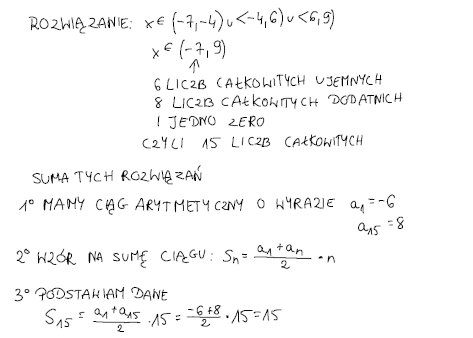 ROZWIĄZANIE: x ∈ (-7,-4) ∪ <-4,6) ∪ <6,9)
x ∈ (-7,9)
↑
6 LICZB CAŁKOWITYCH UJEMNYCH
8 LICZB CAŁKOWITYCH DODATNICH
1 JEDNO ZERO
CZYLI 15 LICZB CAŁKOWITYCH
SUMA TYCH ROZWIĄZAŃ
1° MAMY CIĄG ARYTMETYCZNY O WYRAZIE a₁ = -6
a₁₅ = 8
2° WZÓR NA SUMĘ CIĄGU: Sₙ = (a₁ + aₙ)/2 · n
3° PODSTAWIAM DANE
S₁₅ = (a₁ + a₁₅)/2 · 15 = (-6+8)/2 · 15 = 15